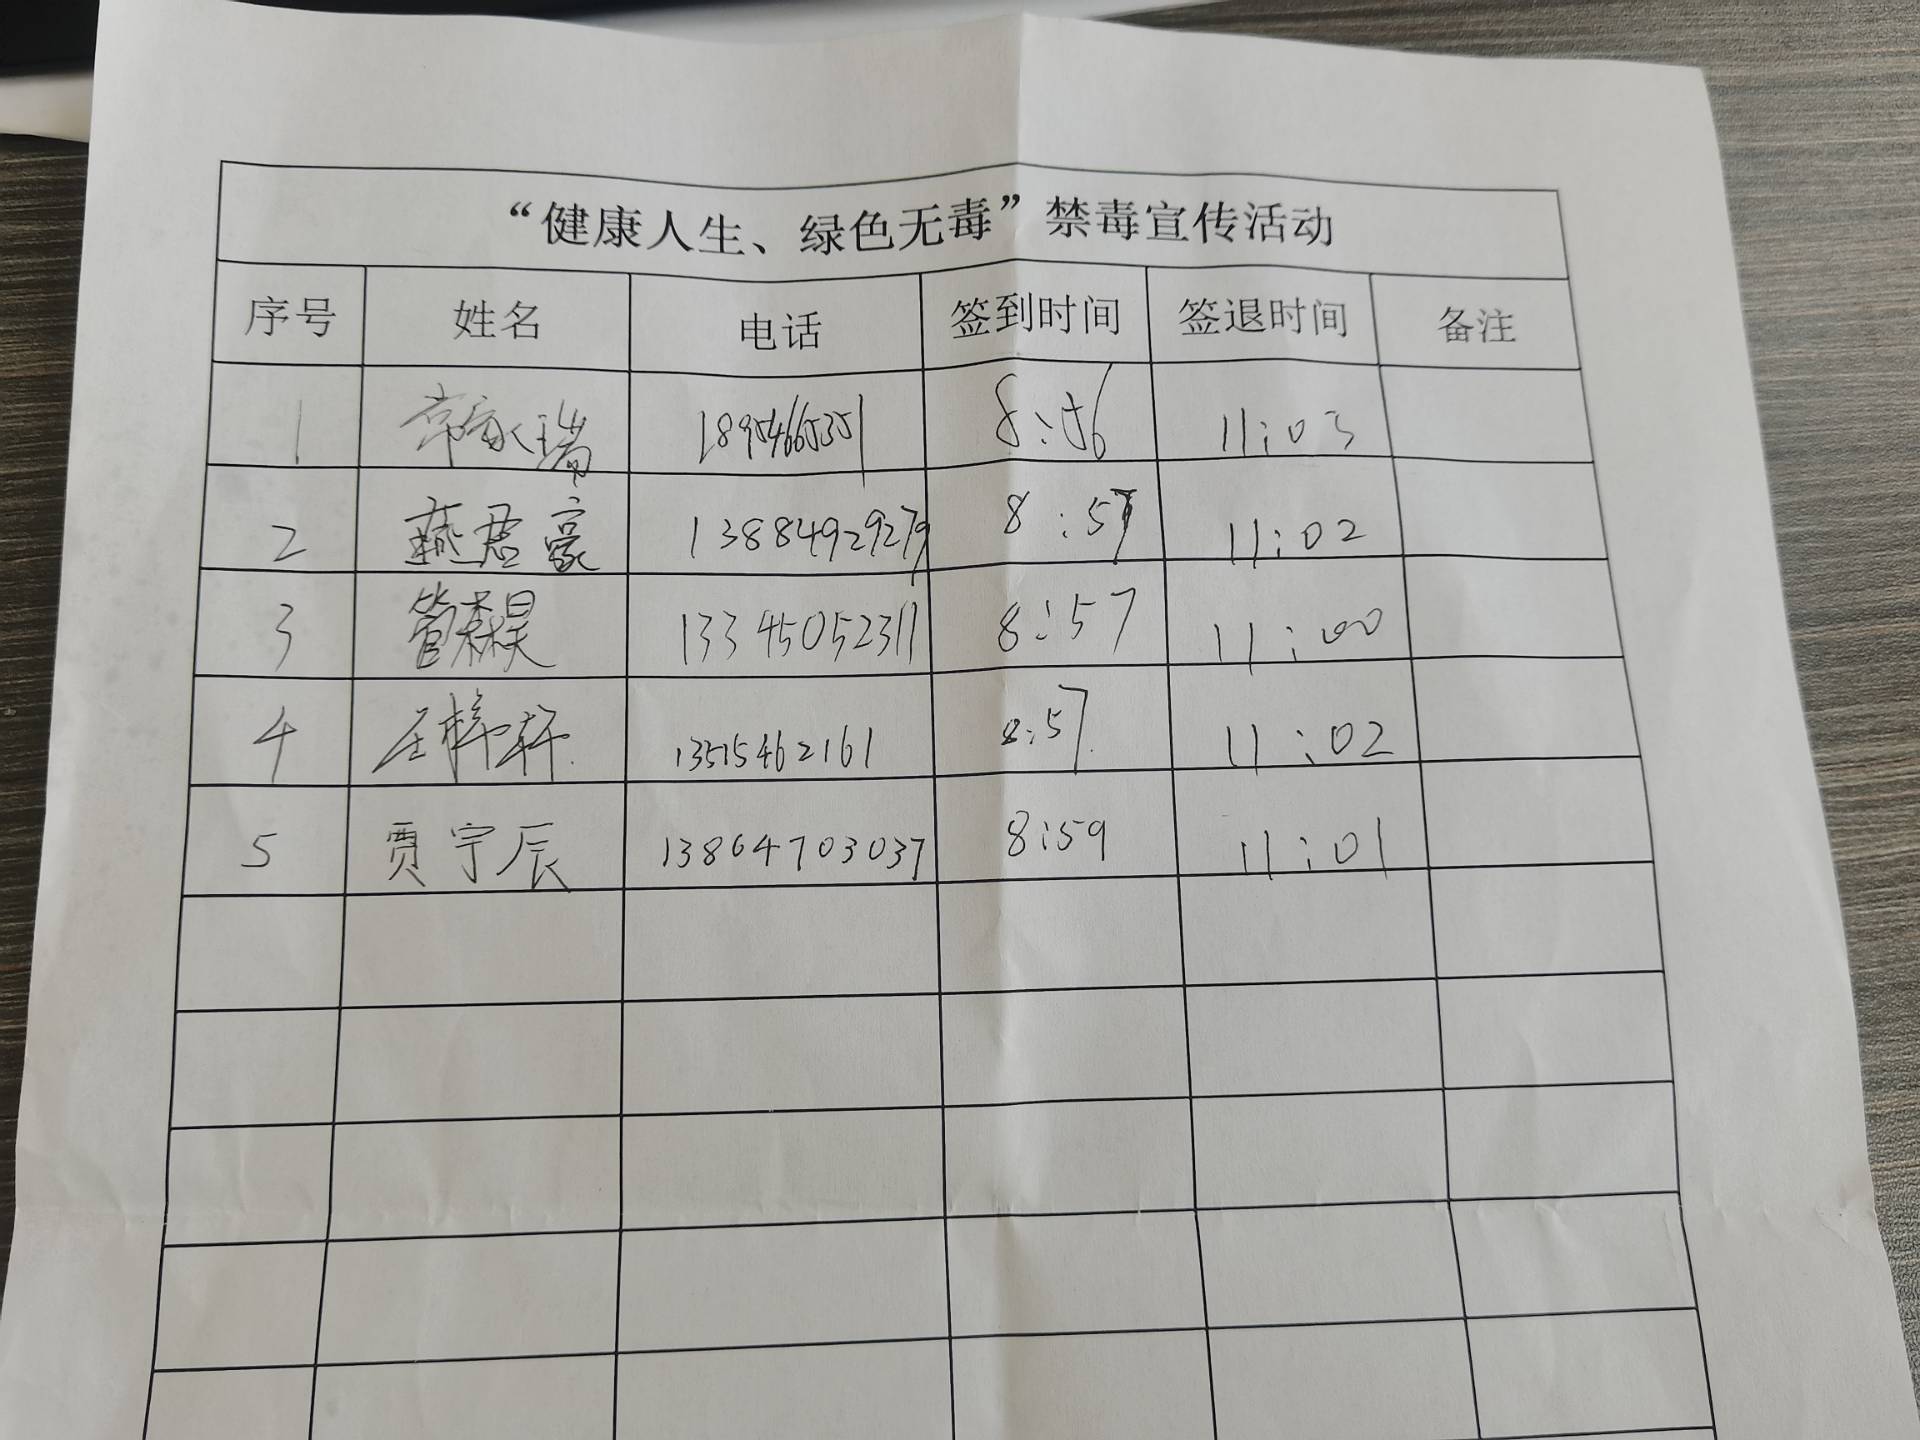 “健康人生、绿色无毒”禁毒宣传活动
序号 姓名 电话 签到时间 签退时间 备注
1 常家瑞 18954665351 8:56 11:03
2 燕君豪 13884929279 8:57 11:02
3 管森昊 13345052311 8:57 11:00
4 王梓轩 13515462161 8:57 11:02
5 贾宇辰 13864703037 8:59 11:01